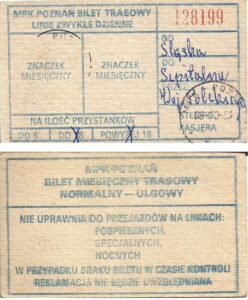 MPK POZNAŃ BILET TRASOWY
LINIE ZWYKŁE DZIENNE
128199
ZNACZEK MIESIĘCZNY
ZNACZEK MIESIĘCZNY
OD
Śląska
DO
Szpitalna
NA ILOŚĆ PRZYSTANKÓW
DO 6
DO 18
POWYŻ. 18
KASJERA
MPK POZNAŃ
BILET MIESIĘCZNY TRASOWY
NORMALNY – ULGOWY
NIE UPRAWNIA DO PRZEJAZDÓW NA LINIACH:
POSPIESZNYCH,
SPECJALNYCH,
NOCNYCH
W PRZYPADKU BRAKU BILETU W CZASIE KONTROLI
REKLAMACJA NIE BĘDZIE UWZGLĘDNIANA